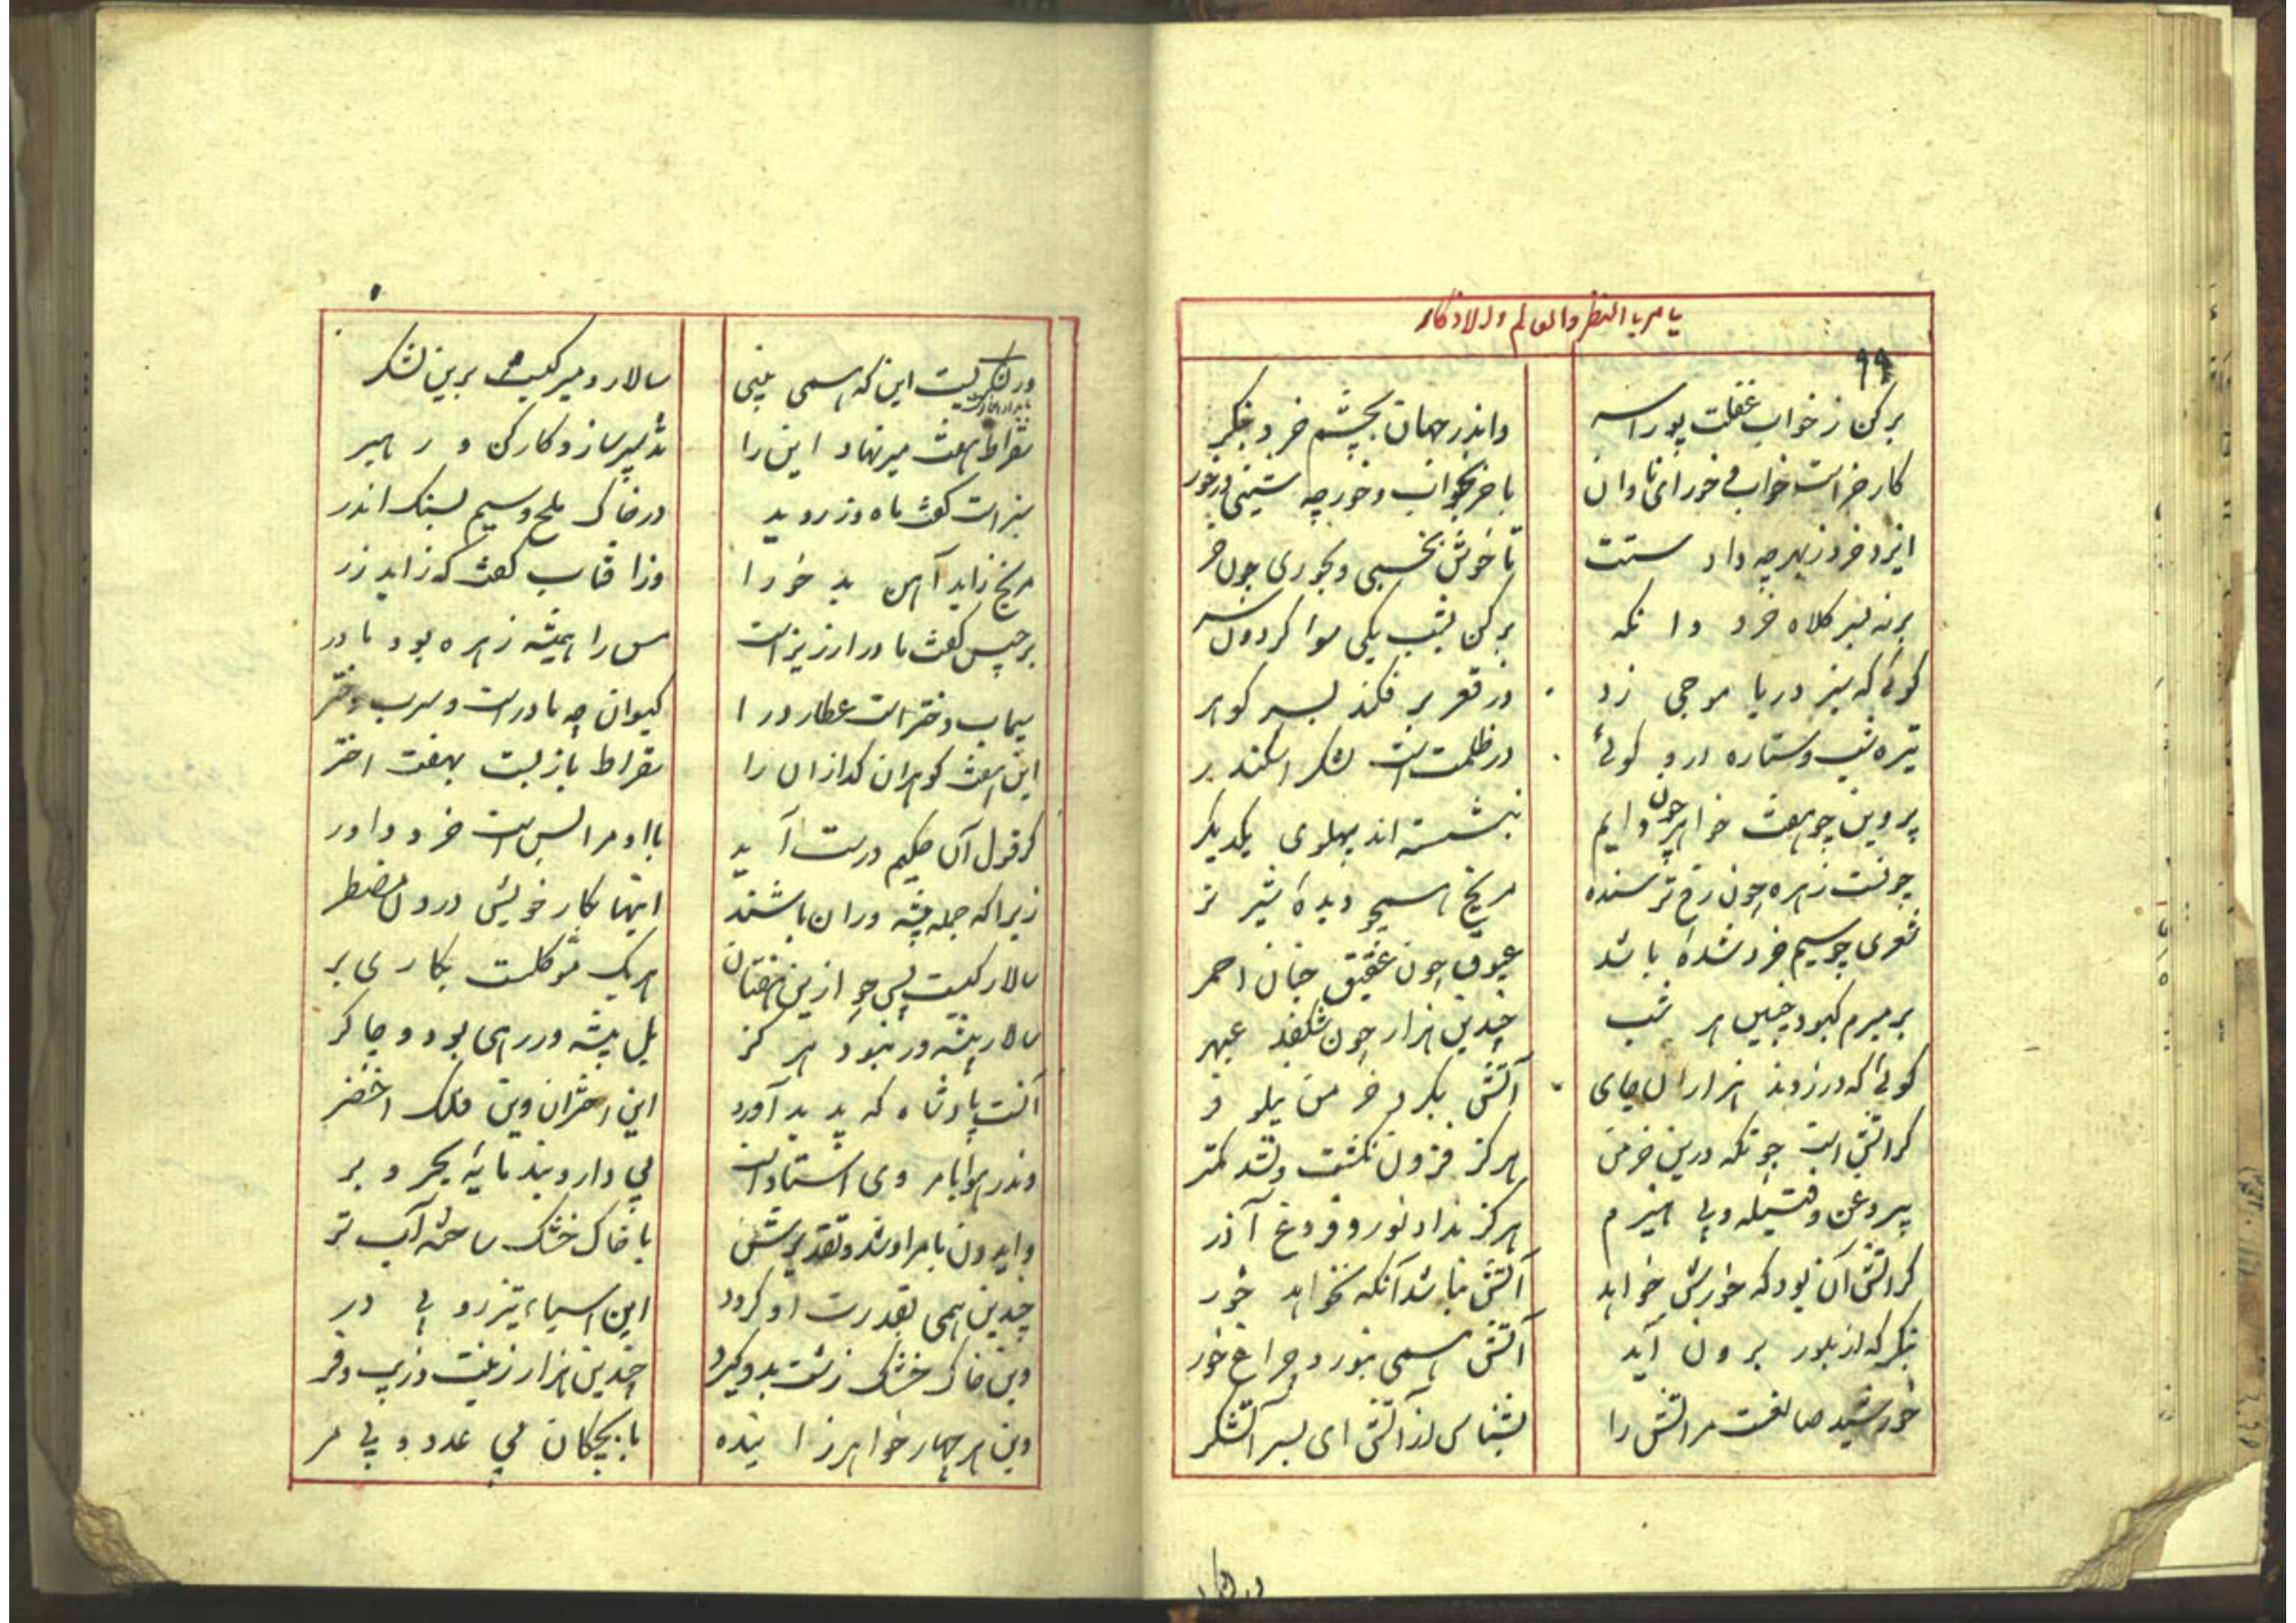 یا مر بالنظر والعالم والاذکار
۹۹
برکن ز خواب غفلت پورا سر واندر جهان بچشم خرد بنگر
کار خر است خواب و خور ای نادان با خر بخواب و خور چه نشینی در خور
ایزد خرد ز بهر چه داد ستت تا خوش بخسبی و بخوری چون خر
برنه بسر کلاه خرد وانکه برکن بشب یکی سوا کردون سر
کوئی که سبز دریا موجی زد وز قعر بر فکند بسر کوهر
تیره شب و ستاره درو کوئی در ظلمت است لشکر اسکندر
پروین چو هفت خواهر چون دایم بنشسته اند پهلوی یکدیکر
چونست زهره چون رخ ترسنده مریخ همیچو دیدهٔ شیر نر
شعری چو سیم خرد شده باشد عیوق چون عقیق چنان احمر
بر مبرم کبود چنین هر شب چندین هزار چون شکفد عبهر
کوئی که در زدند هزاران جای آتش بکرد خرمن نیلوفر
کر آتش است چونکه درین خرمن هرکز فزون نکشت و نشد کمتر
بیروغن و فتیله و بی هیزم هرکز نداد نور و فروغ آذر
کر آتش آن بود که خورش خواهد آتش نباشد آنکه نخواهد خور
بنکر که از بلور برون آید آتش همی بنور و چراغ خور
خورشید صانعست مر آتش را بشناس از آتش ای پسر آتشکر
ور لشکریست این که همی بینی سالار و میر کیست برین لشکر
سقراط هفت میر نهاد این را تدبیر ساز و کارکن و رهبر
سبز است کفت ماه و زرو روید در خاک ملح و سیم بسنک اندر
مریخ زاید آهن بد خو را وز آفتاب کفت که زاید زر
برجیس کفت مادر ارزیز است مس را همیشه زهره بود مادر
سیماب دختر است عطارد را کیوان چه مادر است و سرب دختر
این هفت کوهران کدازان را سقراط باز بست بهفت اختر
کر قول آن حکیم درست آید با او مرا بس است خرد داور
زیرا که جمله پیشه وران باشند اینها بکار خویش درون مضطر
سالار کیست پس چو ازین هفتان هر یک موکلست بکاری بر
سالار پیشه ور نبود هرکز بل پیشه ور رهی بود و چاکر
آنست پادشاه که پدید آورد این اختران وین فلک اخضر
وندر هوا بامر وی استادست بی دار و بند پایهٔ بحر و بر
وایدون بامر او شد و تقدیرش با خاک خشک ساخته آب تر
چندین همی بقدرت او کردد این اسیاء تیزرو بی در
وین خاک خشک زشت بدو کیرد چندین هزار زینت و زیب و فر
وین هر چهار خواهر زاینده با بچکان بی عدد و بی مر